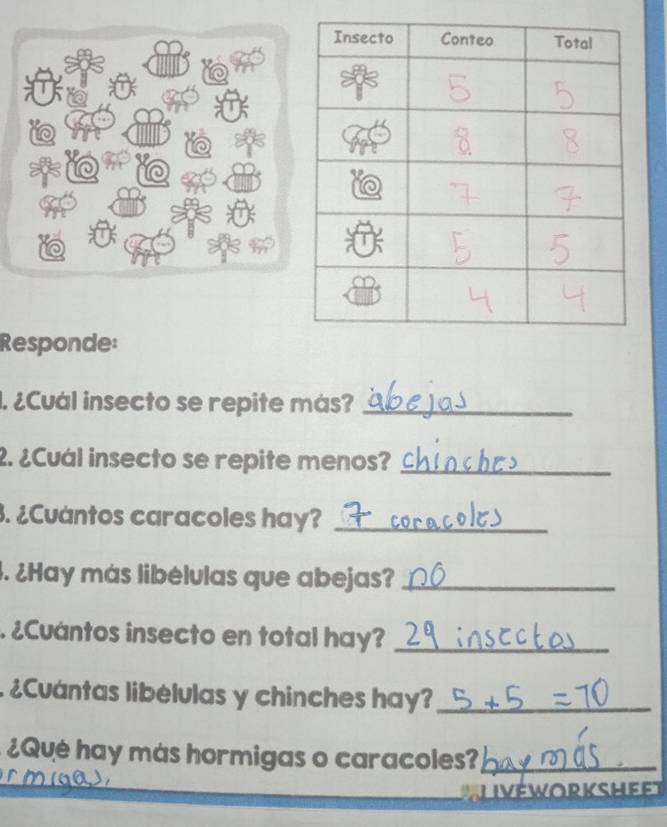 Insecto Conteo Total
5 5
8 8
7 7
5 5
4 4
Responde:
. ¿Cuál insecto se repite más? abejas
2. ¿Cuál insecto se repite menos? chinches
3. ¿Cuántos caracoles hay? 7 coracoles
. ¿Hay más libélulas que abejas? no
. ¿Cuántos insecto en total hay? 29 insectos
. ¿Cuántas libélulas y chinches hay? 5 + 5 = 10
¿Qué hay más hormigas o caracoles? hay más
ormigas.
LIVEWORKSHEET